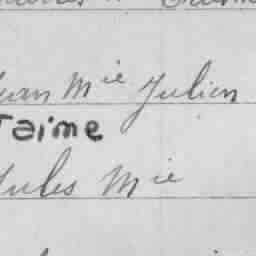 Jean Mie Julien
Jaime
Jules Mie